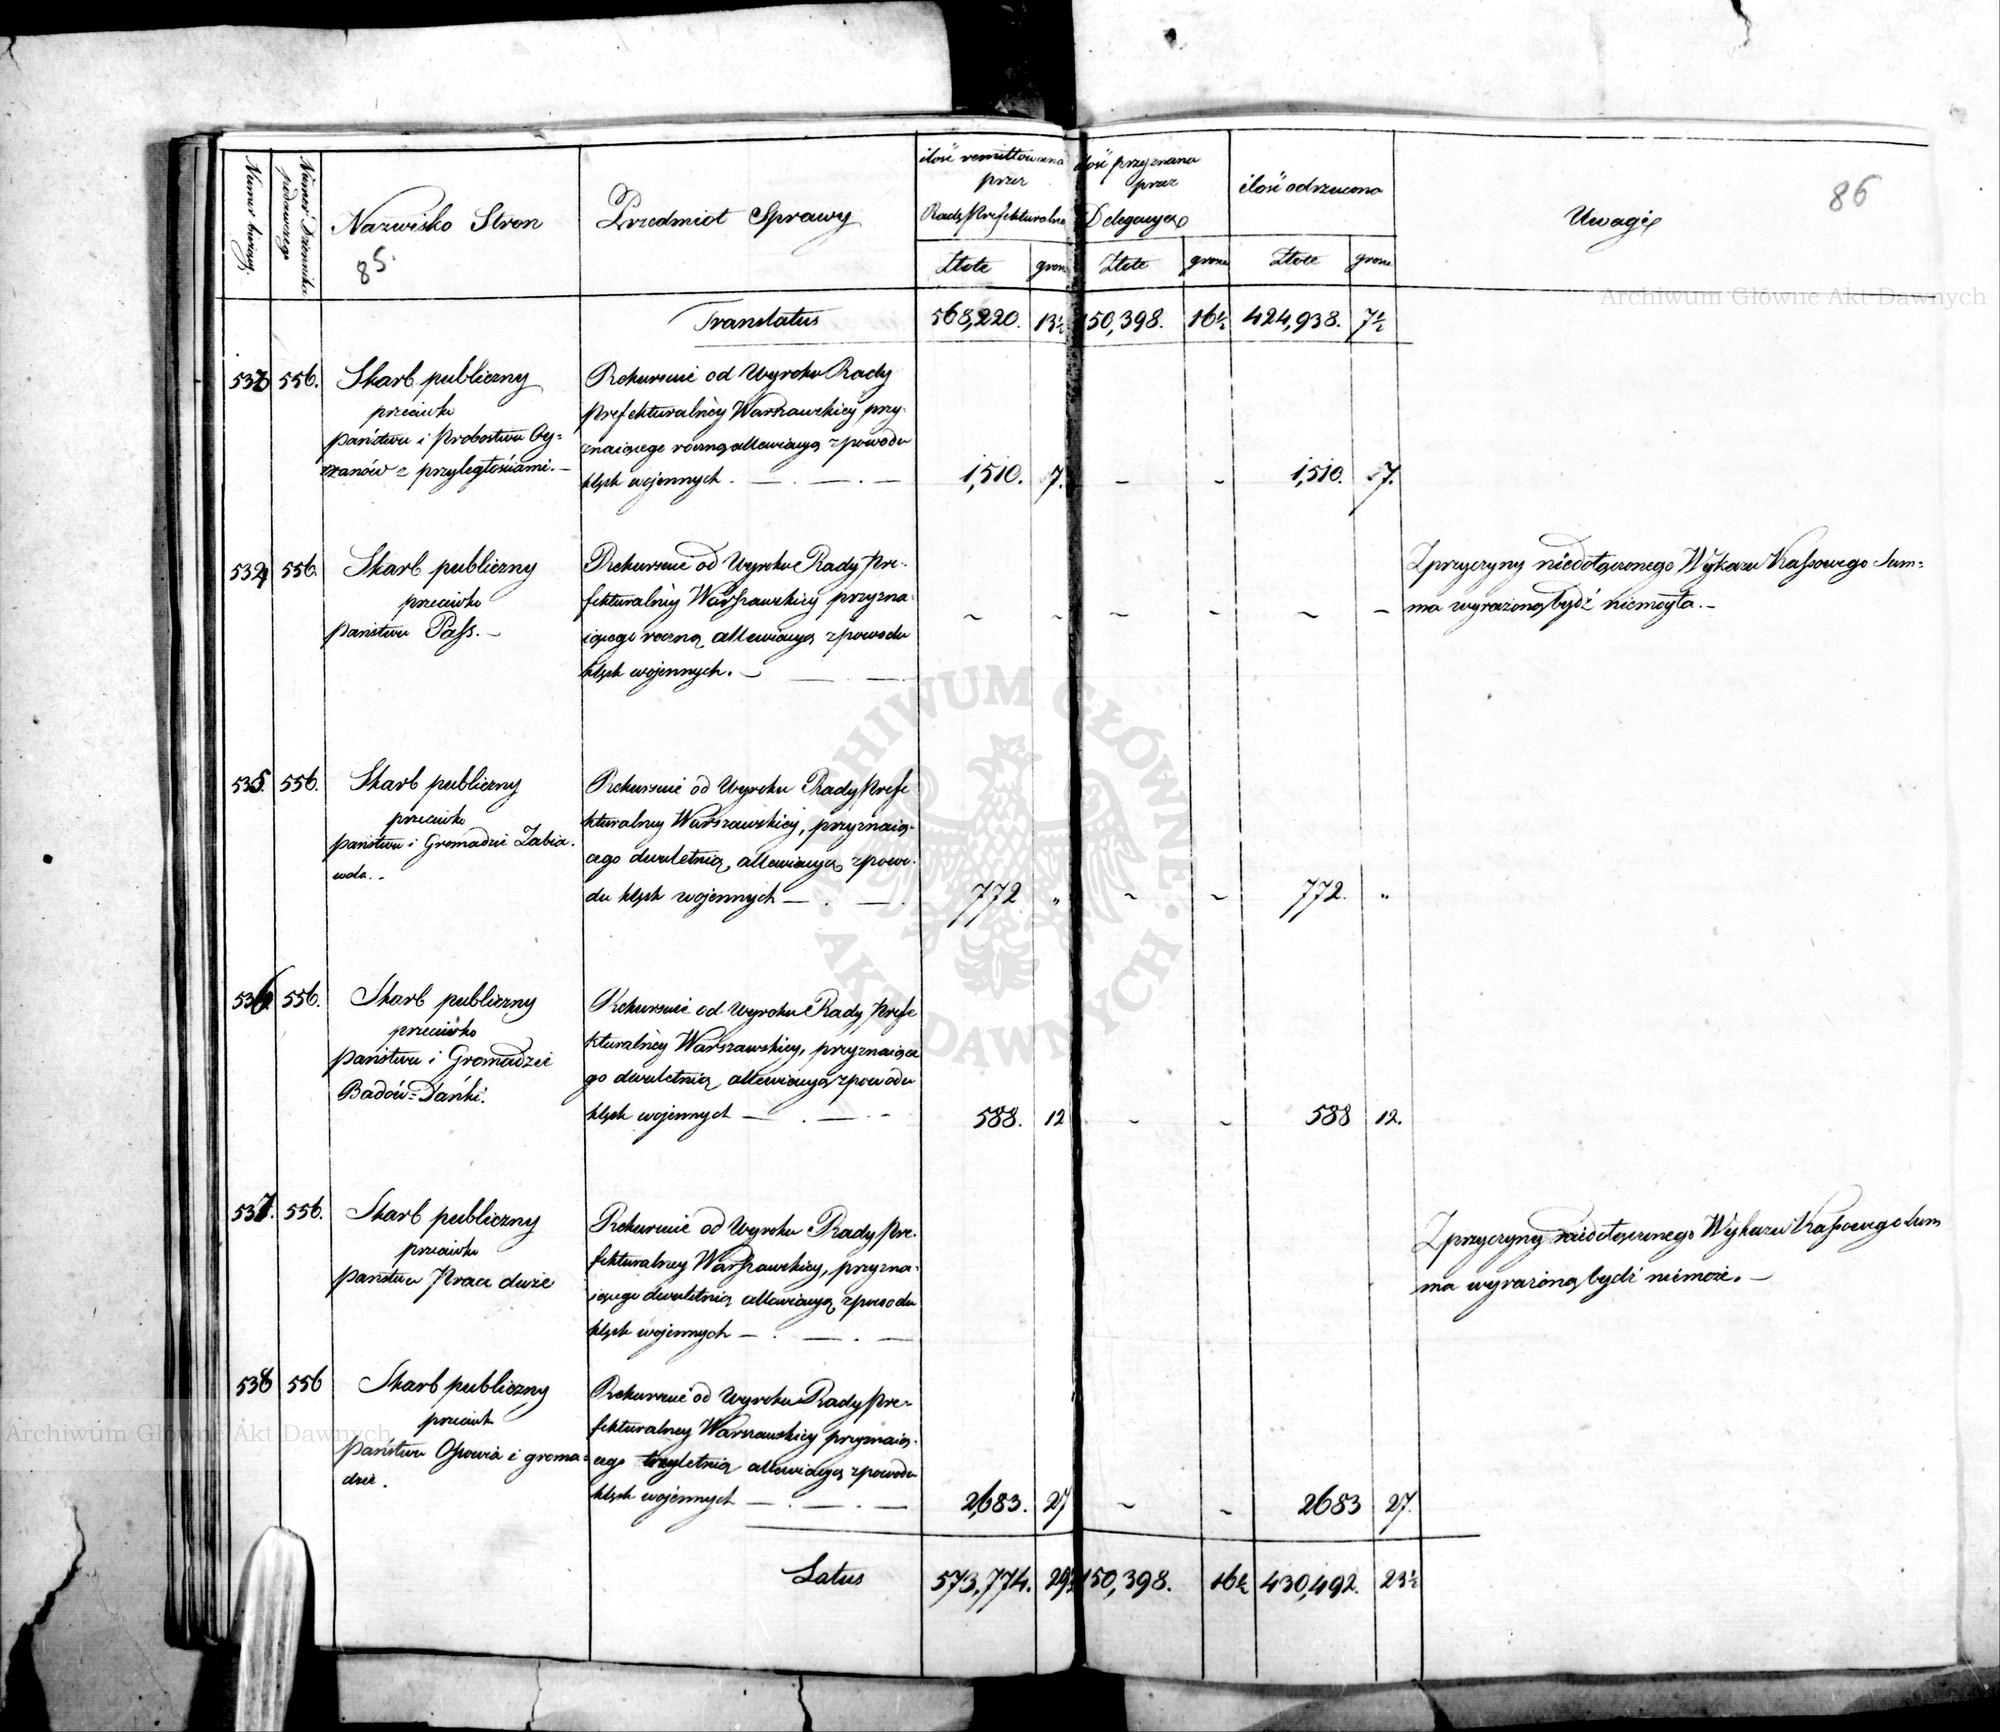 Numer bieżący.
Numer Dziennika
podawczego
Nazwisko Stron
85.
Przedmiot Sprawy
ilość remittowana
przez
Radę Prefekturalną
Złote
grosze
ilość przyznana
przez
Delegacyę
Złote
grosze
ilość odrzucona
Złote
grosze
Uwagi
86
Translatus 568,220. 13½ 150,398. 16½ 424,938. 7½
533 556. Skarb publiczny
przeciwko
państwu i Probostwu Oy=
rzanów z przyległościami. —
Rekursuie od Wyroku Rady
Prefekturalnéy Warszawskiey, przy-
znaiącego roczną allewiacyą z powodu
klęsk wojennych . — . — . —
1,510. 7. ~ ~ 1,510. 7.
534 556. Skarb publiczny
przeciwko
państwu Pass. —
Rekursuie od Wyroku Rady Pre-
fekturalnéy Warszawskiey przyzna-
iącego roczną allewiacyą z powodu
klęsk wojennych. —
~ ~ ~ ~ ~ ~
Z przyczyny niedołączonego Wykazu Kassowego Sum=
ma wyrażoną bydź niemogła. —
535. 556. Skarb publiczny
przeciwko
państwu i Gromadzie Żabia-
wola. -
Rekursuie od Wyroku Rady Prefe
kturalney Warszawskiey, przyznaią-
cego dwuletnią allewiacyą z powo-
du klęsk wojennych — . —
772 " ~ ~ 772. "
536. 556. Skarb publiczny
przeciwko
państwu i Gromadzie
Badów=Dańki.
Rekursuie od Wyroku Rady Prefe
kturalnéy Warszawskiey, przyznaiące
go dwuletnią allewiacyą z powodu
klęsk wojennych — . — . —
588. 12 ~ ~ 588 12.
537. 556. Skarb publiczny
przeciwko
państwu Prace duże
Rekursuie od Wyroku Rady Pre-
fekturalney Warszawskiey, przyzna-
iącego dwuletnią allewiacyą z powodu
klęsk wojennych — . — . —
Z przyczyny niedołączonego Wykazu Kassowego Sum
ma wyrażoną bydź niemoże. —
538 556 Skarb publiczny
przeciwk
państwu Ossowia i groma=
dzie.
Rekursuie od Wyroku Rady Pre-
fekturalney Warszawskiey przyznaią-
cego trzyletnią allewiacyą z powodu
klęsk wojennych — . — . —
2,683. 27 ~ ~ 2683 27.
Latus 573,774. 29½ 150,398. 16½ 430,492. 23½
Archiwum Główne Akt Dawnych
Archiwum Główne Akt Dawnych
ARCHIWUM GŁÓWNE
AKT DAWNYCH